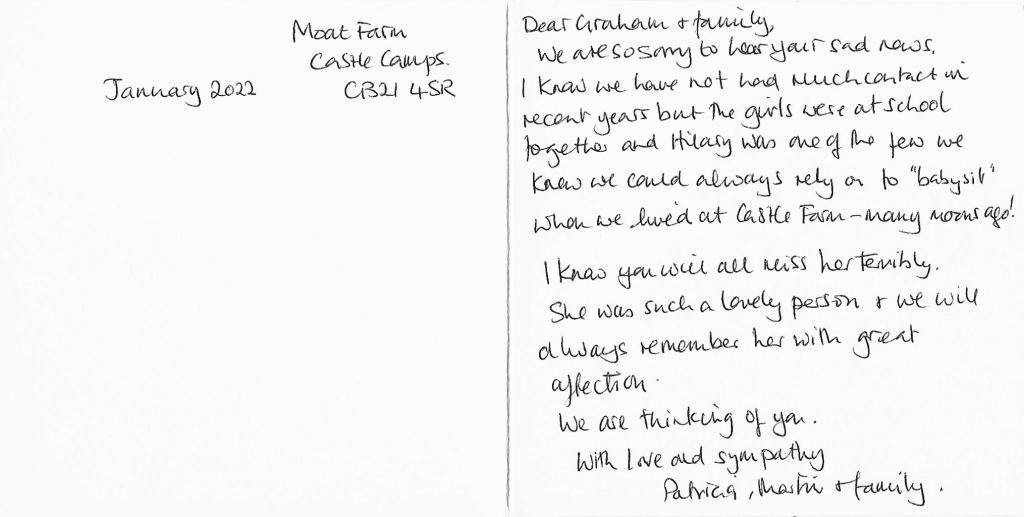 Moat Farm
Castle Camps.
January 2022 CB21 4SR
Dear Graham + family,
We are so sorry to hear your sad news.
I know we have not had much contact in
recent years but the girls were at school
together and Hilary was one of the few we
knew we could always rely on to "babysit"
when we lived at Castle Farm - many moons ago!
I know you will all miss her terribly.
She was such a lovely person + we will
always remember her with great
affection.
We are thinking of you.
With love and sympathy
Patricia, Martin + family.